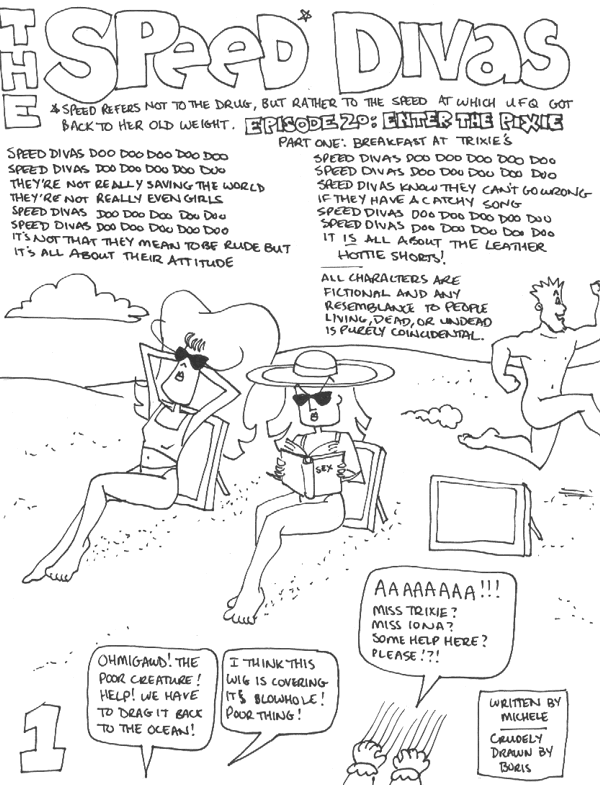 THE SPEED* DIVAS
*SPEED REFERS NOT TO THE DRUG, BUT RATHER TO THE SPEED AT WHICH UFQ GOT
BACK TO HER OLD WEIGHT. EPISODE 20: ENTER THE PIXIE
PART ONE: BREAKFAST AT TRIXIE'S
SPEED DIVAS DOO DOO DOO DOO DOO
SPEED DIVAS DOO DOO DOO DOO DOO
THEY'RE NOT REALLY SAVING THE WORLD
THEY'RE NOT REALLY EVEN GIRLS
SPEED DIVAS DOO DOO DOO DOO DOO
SPEED DIVAS DOO DOO DOO DOO DOO
IT'S NOT THAT THEY MEAN TO BE RUDE BUT
IT'S ALL ABOUT THEIR ATTITUDE
SPEED DIVAS DOO DOO DOO DOO DOO
SPEED DIVAS DOO DOO DOO DOO DOO
SPEED DIVAS KNOW THEY CAN'T GO WRONG
IF THEY HAVE A CATCHY SONG
SPEED DIVAS DOO DOO DOO DOO DOO
SPEED DIVAS DOO DOO DOO DOO DOO
IT IS ALL ABOUT THE LEATHER
HOTTIE SHORTS!
ALL CHARACTERS ARE
FICTIONAL AND ANY
RESEMBLANCE TO PEOPLE
LIVING, DEAD, OR UNDEAD
IS PURELY COINCIDENTAL.
SEX
AAAAAAAA!!!
MISS TRIXIE?
MISS IONA?
SOME HELP HERE?
PLEASE!?!
OHMIGAWD! THE
POOR CREATURE!
HELP! WE HAVE
TO DRAG IT BACK
TO THE OCEAN!
I THINK THIS
WIG IS COVERING
ITS BLOWHOLE!
POOR THING!
WRITTEN BY
MICHELE
CRUDELY
DRAWN BY
BORIS
1